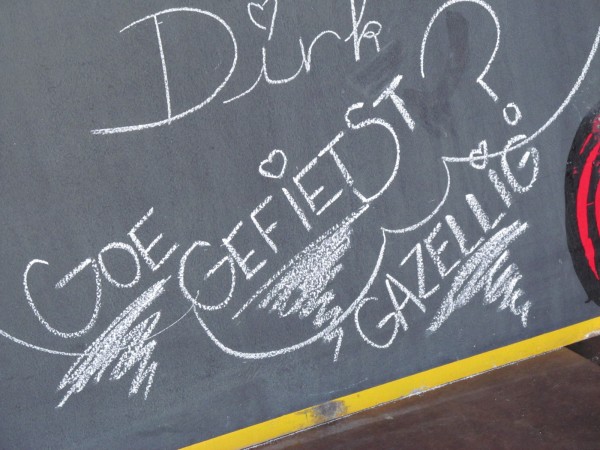 Dirk
GOE GEFIETST?
GAZELLIG